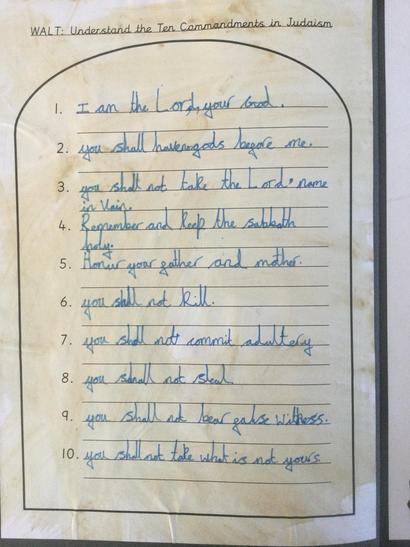 WALT: Understand the Ten Commandments in Judaism
1. I am the Lord, your God.
2. you shall have no gods before me.
3. you shall not take the Lord's name
in Vain.
4. Remember and keep the sabbath
holy.
5. Honur your father and mother.
6. you shall not kill.
7. you shall not commit adultery
8. you shall not steal
9. you shall not bear false witness.
10. you shall not take what is not yours